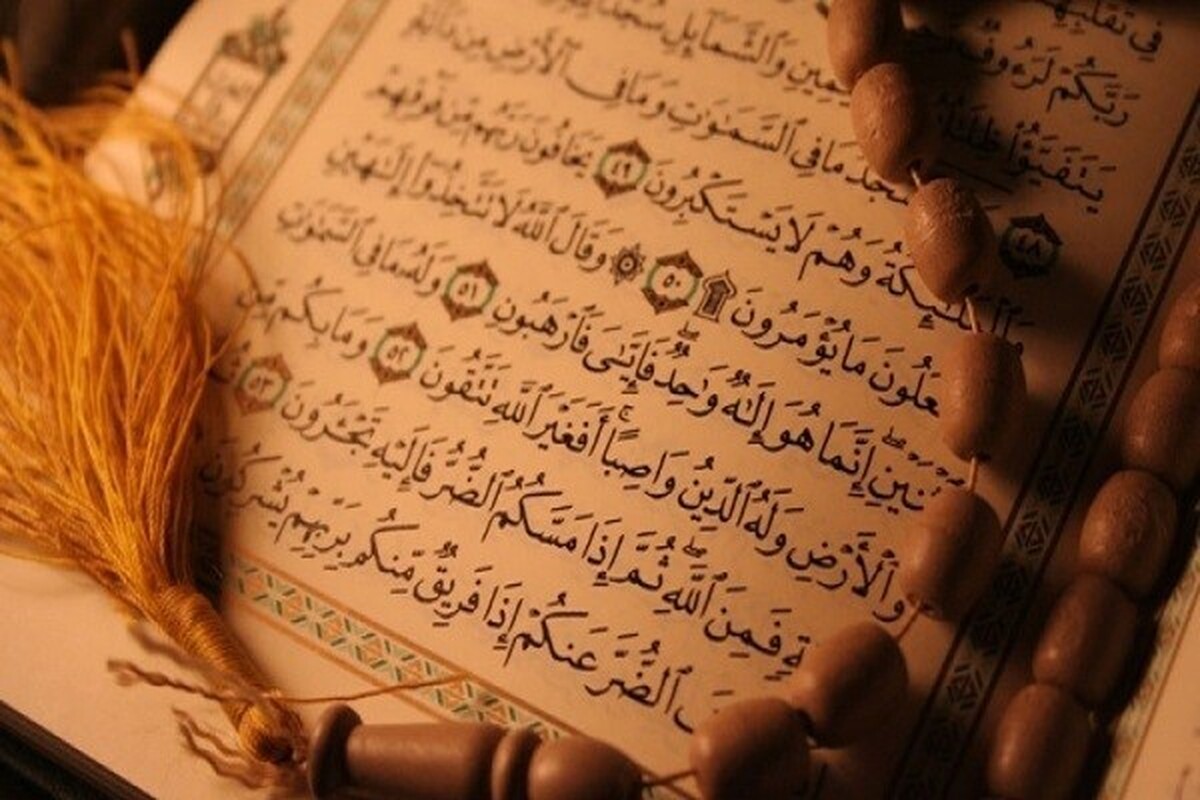 فِى تَقَلُّبِهِمْ
رَبَّكُمْ لَرَءُوفٌ
يَتَفَيَّؤُا۟ ظِلَٰلُهُۥ ٱلْيَمِينِ وَٱلشَّمَآئِلِ سُجَّدًا
٤٨ يَسْجُدُ مَا فِى ٱلسَّمَٰوَٰتِ وَمَا فِى ٱلْأَرْضِ مِن دَآبَّةٍ
وَٱلْمَلَٰٓئِكَةُ وَهُمْ لَا يَسْتَكْبِرُونَ ٤٩ يَخَافُونَ رَبَّهُم مِّن فَوْقِهِمْ
عَلُونَ مَا يُؤْمَرُونَ ۩ ٥٠ ۞ وَقَالَ ٱللَّهُ لَا تَتَّخِذُوٓا۟ إِلَٰهَيْنِ
ٱثْنَيْنِ إِنَّمَا هُوَ إِلَٰهٌ وَٰحِدٌ فَإِيَّٰىَ فَٱرْهَبُونِ ٥١ وَلَهُۥ مَا فِى ٱلسَّمَٰوَٰتِ
وَٱلْأَرْضِ وَلَهُ ٱلدِّينُ وَاصِبًا أَفَغَيْرَ ٱللَّهِ تَتَّقُونَ ٥٢ وَمَا بِكُم مِّن
ةٍ فَمِنَ ٱللَّهِ ثُمَّ إِذَا مَسَّكُمُ ٱلضُّرُّ فَإِلَيْهِ تَجْـَٔرُونَ ٥٣
فَ ٱلضُّرَّ عَنكُمْ إِذَا فَرِيقٌ مِّنكُم بِرَبِّهِمْ يُشْرِكُونَ